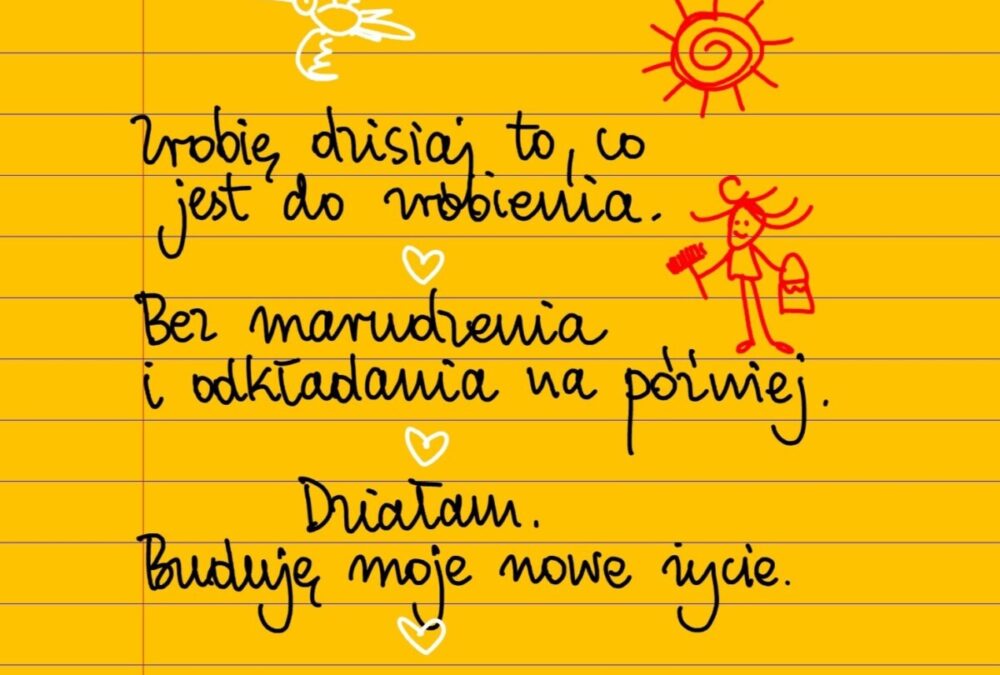 Zrobię dzisiaj to, co
jest do zrobienia.
Bez marudzenia
i odkładania na później.
Działam.
Buduję moje nowe życie.